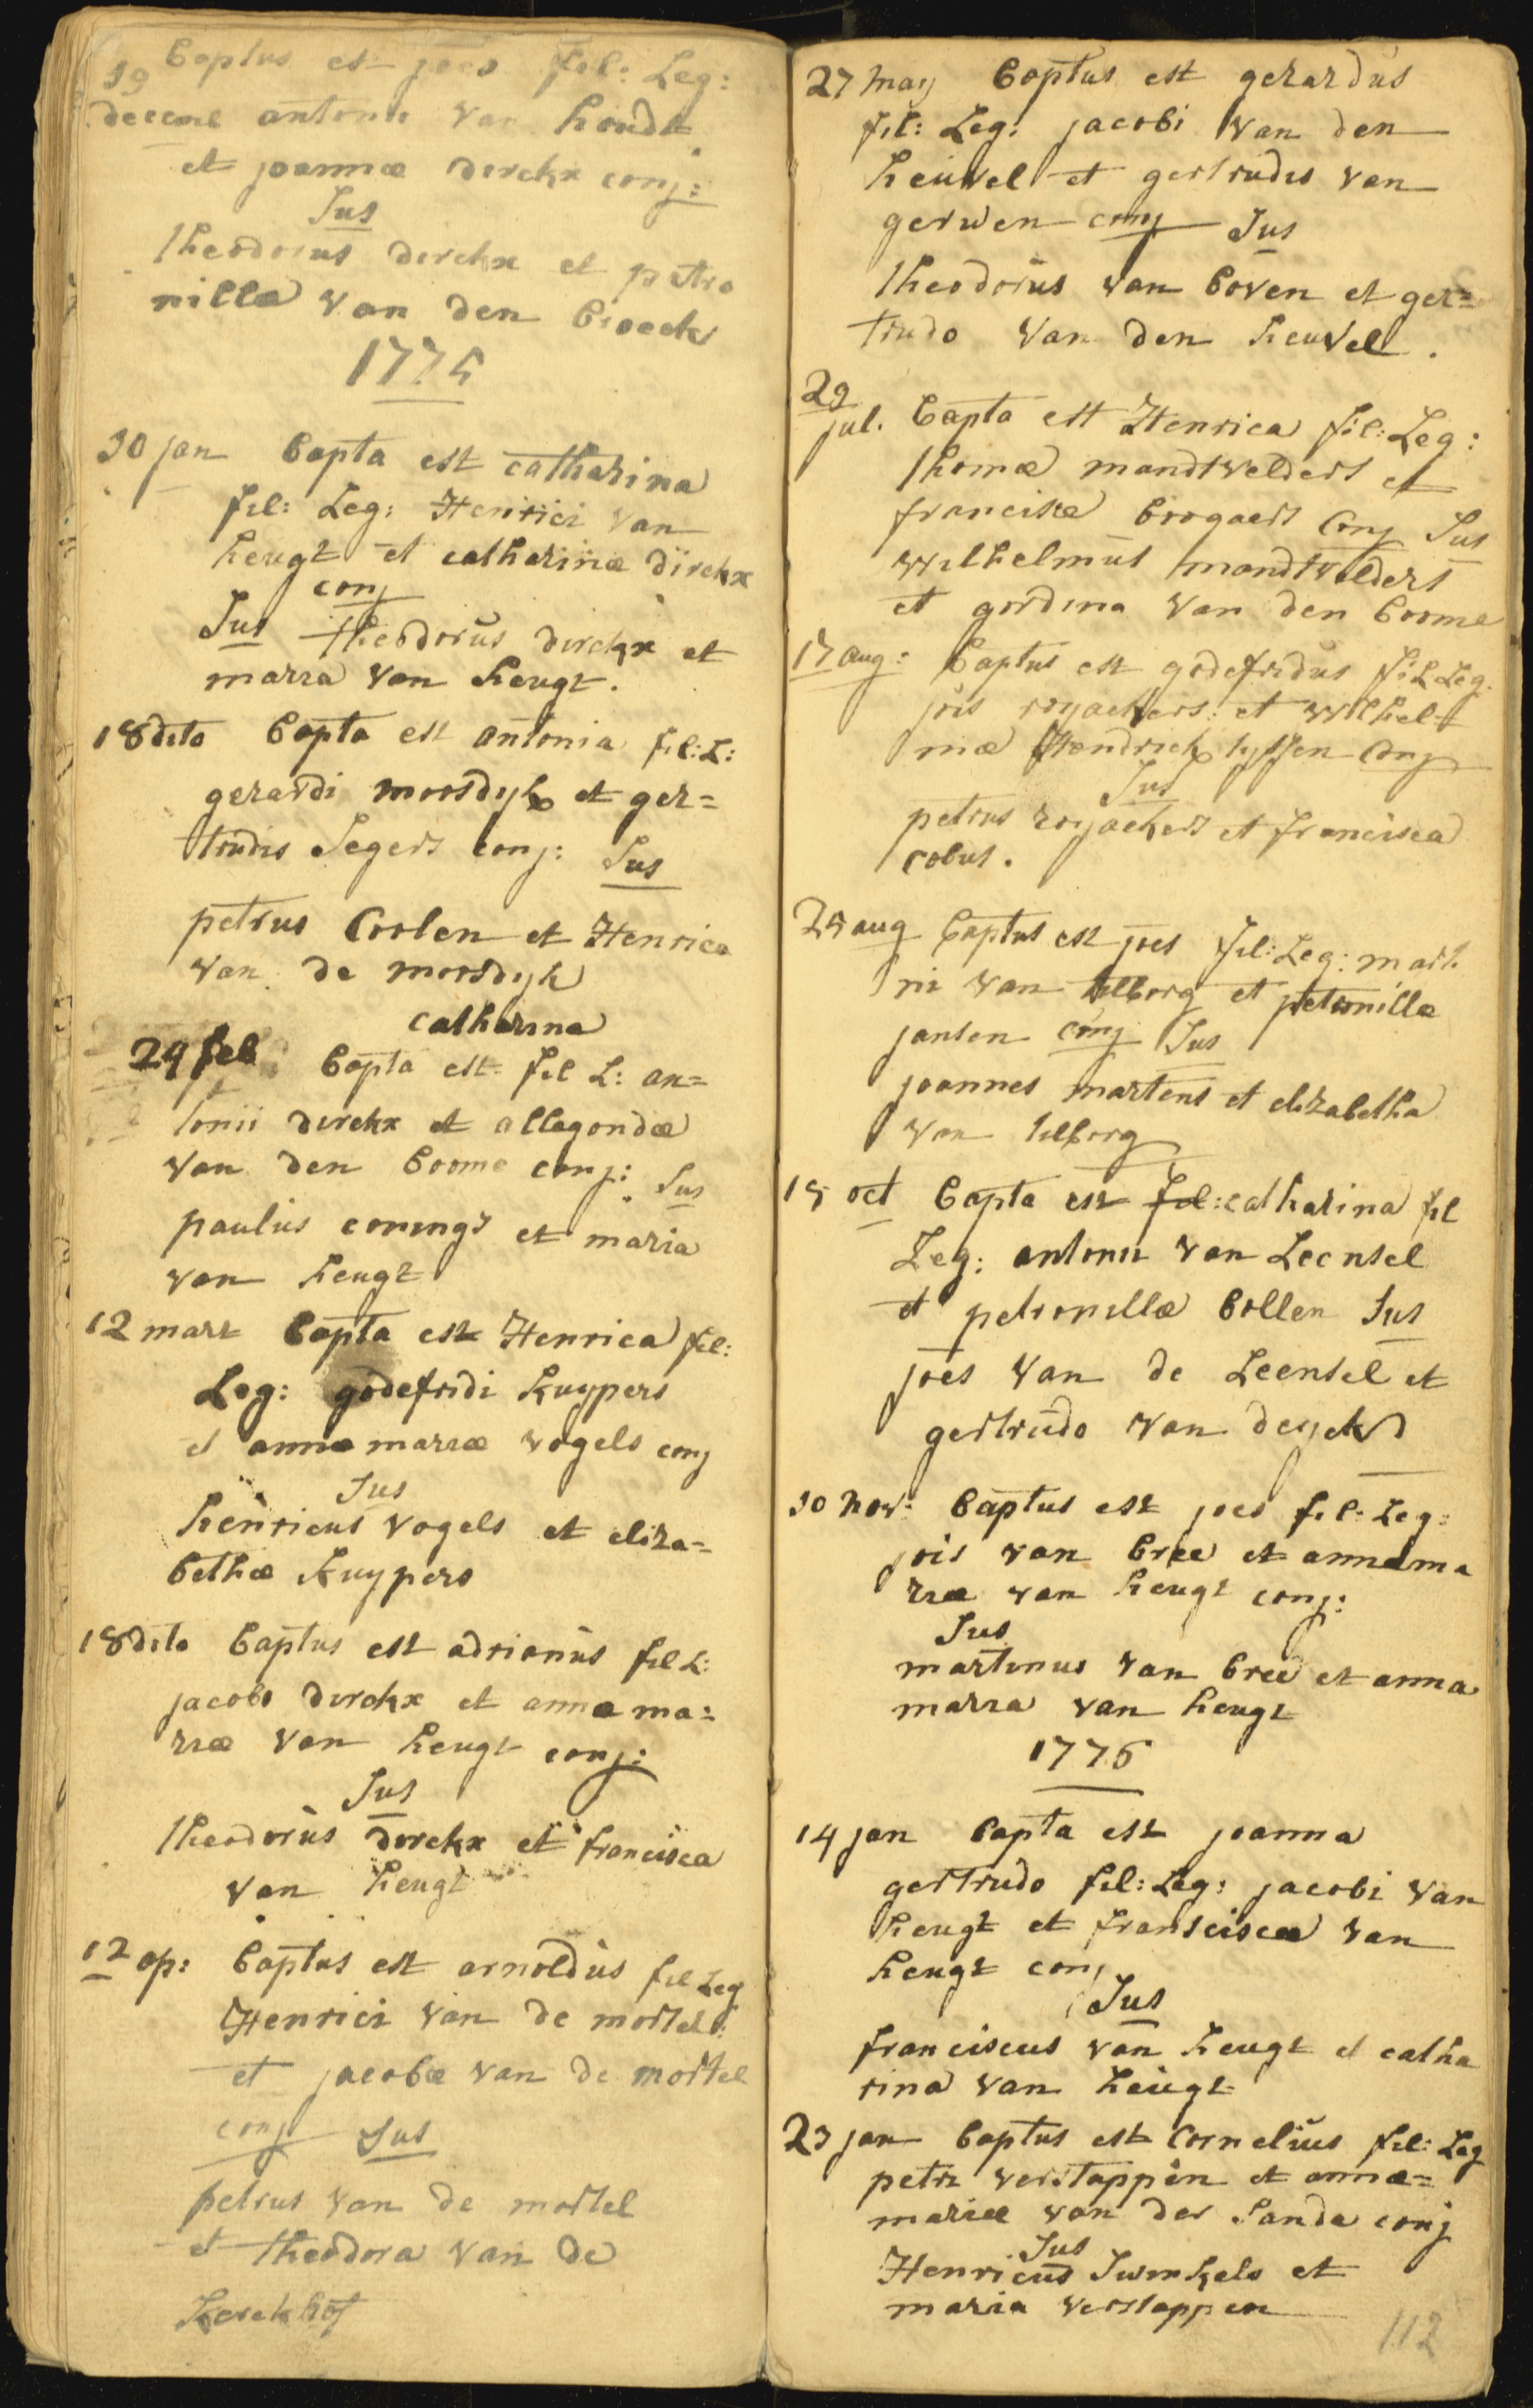 Baptus est joes fil: Leg:
19
decemb antonii van houdt
et joannæ dirckx conj:
Sus
theodorus dirckx et petro
nilla van den broeck
1775
30 jan Bapta est catharina
fil: Leg: Henrici van
heugt et catharinæ dirckx
conj
Sus theodorus dirckx et
maria van heugt.
18 dito Bapta est antonia fil: L:
gerardi moosdyk et ger=
trudis Segers conj: Sus
petrus Coolen et Henrica
van de moosdyk
catharina
24 feb Bapta est fil L: an=
tonii dirckx et allegondæ
van den boome conj: Sus
paulus conings et maria
van heugt
12 mart Bapta est Henrica fil:
Leg: godefridi Kuypers
et annæ mariæ vogels conj
Sus
henricus vogels et eliza=
bethæ Kuypers
18 dito Baptus est adrianus fil L:
jacobi dirckx et annæ ma=
riæ van heugt conj:
Sus
theodorus dirckx et francisca
van heugt
12 ap: Baptus est arnoldus fil Leg
Henrici van de mortel:
et jacobæ van de mortel
conj Sus
petrus van de mortel
et theodora van de
Kerckhof
27 may Baptus est gerardus
fil: Leg: jacobi van den
heuvel et gertrudis van
gerwen conj Sus
theodorus van boven et ger=
trudo van den heuvel.
29
jul. Bapta est Henrica fil: Leg:
thomæ mandtvelders et
franciscæ boogaers conj Sus
Wilhelmus mandtvelders
et gordina van den boome
17 aug: Baptus est godefridus fil Leg.
jois royackers: et wilhel=
mæ Hendrick tyssen conj
Sus
petrus royackers et francisca
cobus.
25 aug Baptus est joes fil: Leg: marti
ni van tilborg et petronillæ
jansen conj Sus
joannes martens et elizabetha
van tilborg
15 oct Bapta est fil: catharina fil
Leg: antonii van Leensel
et petronillæ bollen Sus
joes van de Leensel et
gertrudo van deyck
30 nov: Baptus est joes fil: Leg:
jois van bree et annæma
riæ van heugt conj:
Sus
martinus van bree et anna
maria van heugt
1776
14 jan Bapta est joanna
gertrudo fil: Leg: jacobi van
heugt et fransciscæ van
heugt conj
Sus
franciscus van heugt et catha
rina van heugt
23 jan Baptus est Cornelius fil: Leg
petri verstappen et annæ=
mariæ van der Sanda conj
Sus
Henricus Swinkels et
maria verstappen
112